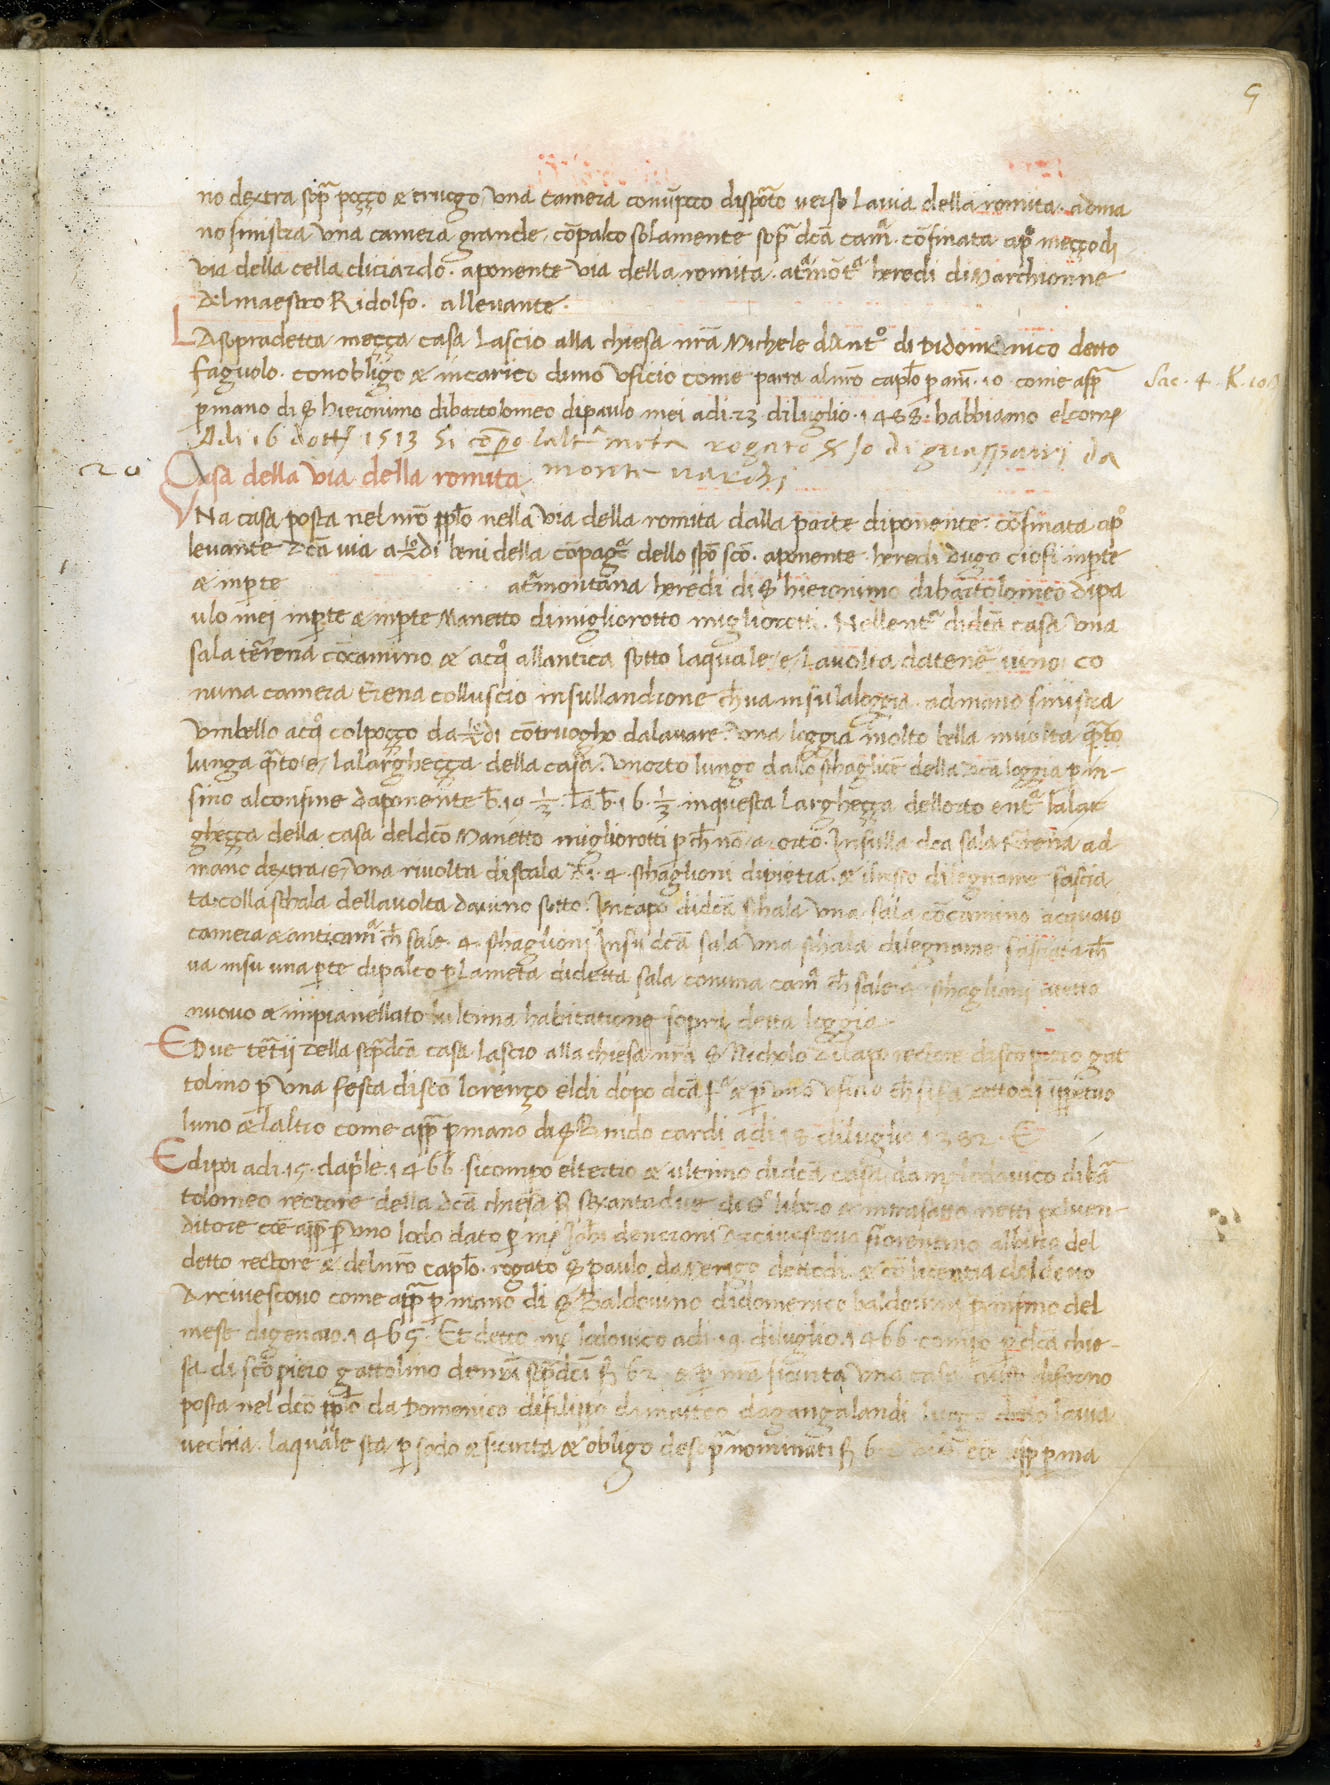 9
no dextra sop̃ poçço & truogo, una camera conũpoco discop̃to verso lavia della romita. adma
no sinistra una camera grande, cõpalco solamente sop̃ dcã cam̃. cõfinata ap̊ meççodi
via della cella diciardo. aponente via della romita. at̃mõt̃ heredi di Marchionne
del maestro Ridolfo. allevante.
LA sopradetta meçça casa lascio alla chiesa nr̃a Michele dant̊ di Didomenico detto
fagiuolo. conobligo & incarico duno uficio come parra alnr̃o cap̃lo p anī. 10. come ap̃p
Sac. 4. K. 10
pmano di S hieronimo dibartolomeo dipaulo mei adi. 23. diluglio. 1488. habbiamo elcomp̃
Adi 16 dott̃ 1513 si cõpo laltr̃ meta rogato S Jo di guasparri da
monte varchi
20
Casa della via della romita
UNa casa posta nel nr̃o pp̃lo nella via della romita dalla parte diponente. cõfinata ap̊
levante dcã via a ½di beni della cõpag̃ dello spõ scõ. aponente heredi dugo ciofi inp̃te
& inp̃te at̃montãna heredi di S hieronimo dibartolomeo dipa
ulo mei inp̃te & inp̃te Manetto dimigliorotto migliorotti. Nellent̃ didcã casa una
sala terrena cõcamino & acq̊ allantica sotto laquale, e, lavolta datenẽ vino co
nuna camera t̃rena colluscio insullandrone ch̃va insulaloggia. admano sinistra
umbello acq̊ colpoçço da½di cõtruogho dalavare. una loggia molto bella involta q̃to
lunga q̃to, e, lalargheçça della casa. unorto lungo dallo schaglione della dcã loggia pin-
sino alconfine daponente b̃. 19 ½. lã b̃. 16. ½. inquesta largheçça dellorto ent̃ lalar
gheçça della casa deldcõ Manetto migliorotti pch̃ nõ, a, orto. Insulla dca sala t̃rena ad
mano dextra, e, una rivolta discala di. 4. schaglioni dipietra. & ilresto dilegname fascia
ta colla schala dellavolta davino sotto. Incapo didcã schala una sala cõcamino acquaio
camera & anticam̃ ch̃ sale. 4. schaglioni Insu dcã sala una schala dilegname fasciata ch̃
va insu una p̃te dipalco p̃ lameta didetta sala conuna cam̃ ch̃ sale schaglioni atetto
nuovo & inpianellato lultima habitatione sopra detta loggia
EDue tẽtii della sop̃dcã casa lascio alla chiesa nr̃a S Nicholo dilapo rectore disco piero gat
tolino p̃ una festa discõ lorenço eldi dopo dcã f̃ & p̃ uno uficio ch̃ si fa ottodi ippetuo
luno & laltro come app̃ pmano di S Bindo cardi adi 18 diluglio 1382. E
Edipoi adi. 15. dap̃le. 1466. sicompo elterço & ultimo didcã casa damp̃ lodovico dibã
tolomeo rectore della dcã chiesa f̃ sexantadue di S libero & intrasatto netti pelven-
ditore cõe app̃ p̃ uno lodo dato p̃ mp̃ Joh̃i deneroni Arcivescovo fiorentino albitro del
detto rectore & delnr̃o cap̃lo. rogato S Paulo da Verigo dettodi. & cõ licentia deldetto
Arcivescovo come app̃ p̃ mano di S Baldovino didomenico baldovini primo del
mese digenaio. 1465. Et detto mp̃ lodovico adi. 19. diluglio. 1466. compo p̃ dcã chie-
sa di scõ piero gattolino denari sop̃dcĩ f̃ 62. & p̃ nr̃a sicurta una casa auso diforno
posta nel dcõ pp̃lo da Domenico difilippo dimatteo dagangalandi luogo detto lavia
vechia. laquale sta p̃ sodo & sicurta & obligo desop̃nominati f̃ 62 app̃ pma